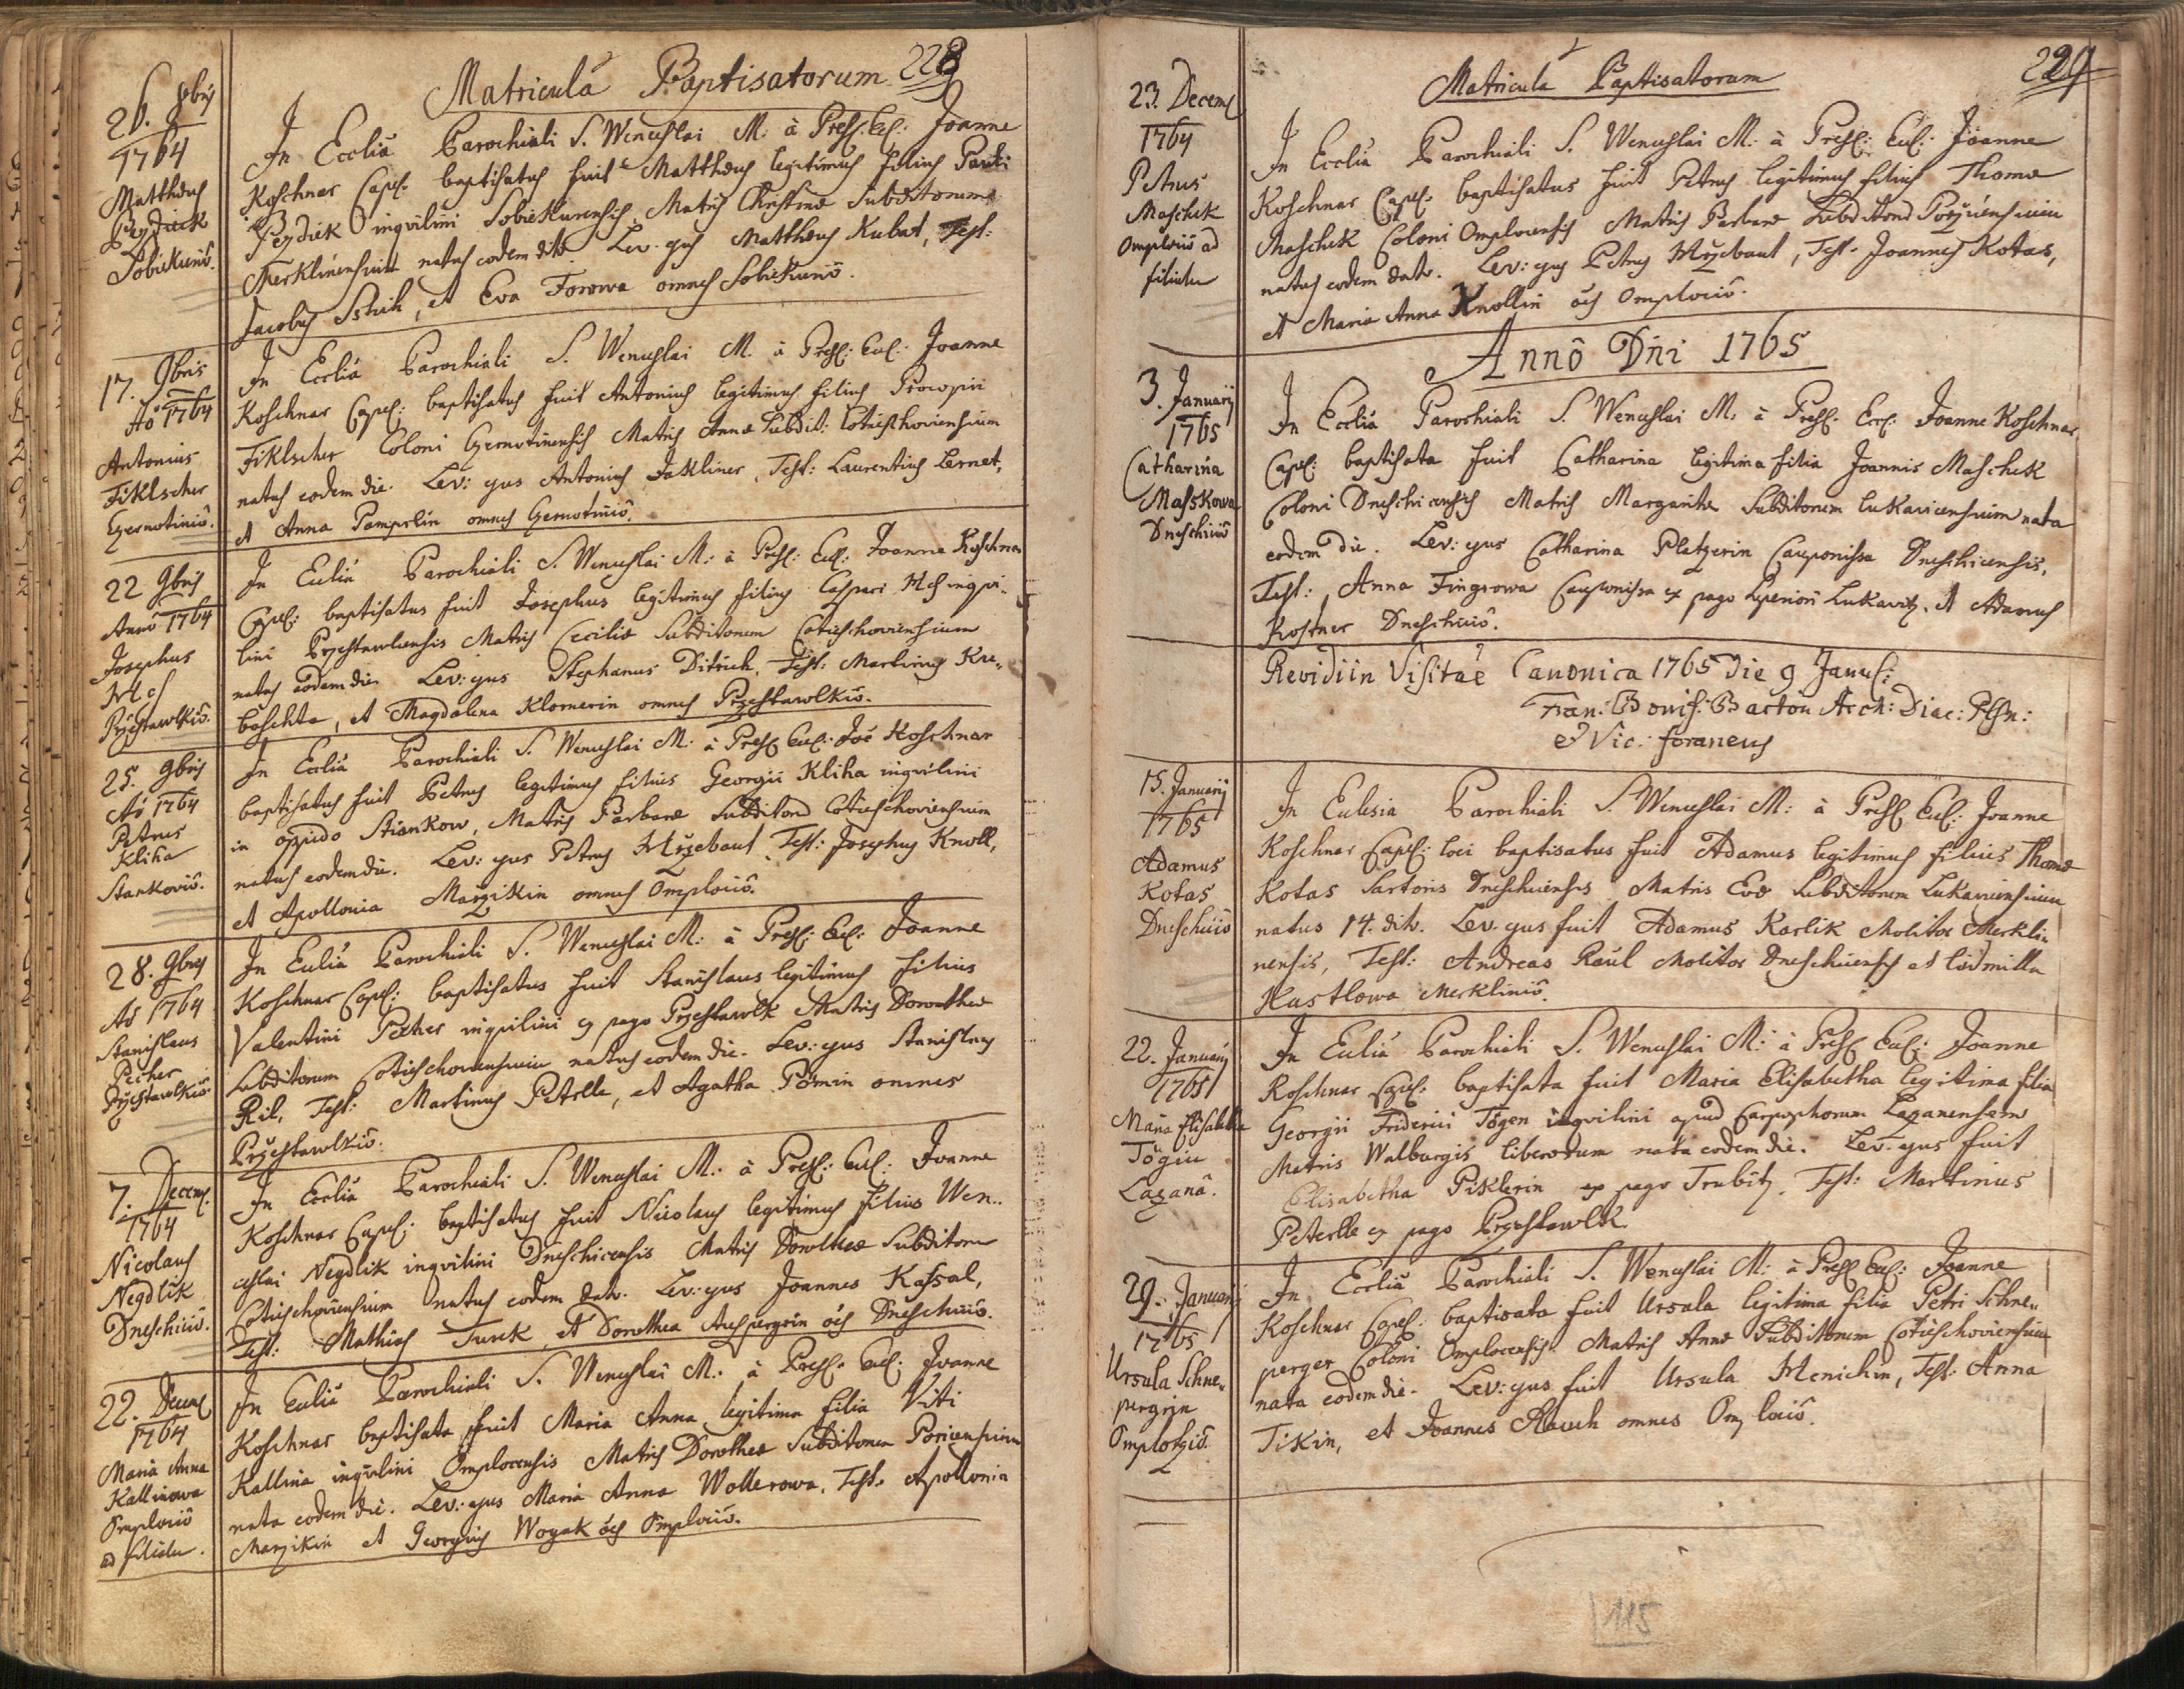 Matricula Baptisatorum 228
26. 8bris
1764
Matthæus
Peydiek
Sobiekuriô.
In Ecclia Parochiali S. Wenceslai M: à Presl: Eccl: Joanne
Koschnar Capel: baptisatus fuit Matthæus legitimus filius Pauli
Peydiek inqvilini Sobiekurensis Matris Christinæ Subditorum
Merklinensium natus eodem dito. Lev: ejus Matthæus Kubat, Test:
Jacobus Sstich, et Eva Forowa omnes Sobiekuriô.
17. 9bris
Aô 1764
Antonius
Fiklscher
Gernotiniô.
In Ecclia Parochiali S. Wenceslai M. à Presl: Eccl: Joanne
Koschnar Capel: baptisatus fuit Antonius legitimus filius Procopii
Fiklscher Coloni Gernotinensis Matris Annæ Subdit: Cotieschoviensium
natus eodem die. Lev: ejus Antonius Jakliner, Test: Laurentius Lernet,
et Anna Pamperlin omnes Gernotiniô.
22 9bris
Annô 1764
Josephus
Przestawlkiô.
In Ecclia Parochiali S. Wenceslai M: à Presl: Eccl: Joanne Koschnar
Capel: baptisatus fuit Josephus legitimus filius Caspari inqvi-
lini Przestawlensis Matris Cecilie Subditorum Cotieschoviensium
natus eodem die. Lev: ejus Stephanus Ditrich, Test: Martinus Kre-
boschta, et Magdalena Klornerin omnes Przestawlkiô.
25. 9bris
Aô 1764
Petrus
Kliha
Stankoviô.
In Ecclia Parochiali S. Wenceslai M: à Presl: Eccl: Joê Koschnar
baptisatus fuit Petrus legitimus filius Georgii Kliha inqvilini
in oppido Stiankow, Matris Barbaræ Subditorum Cotieschoviensium
natus eodem die. Lev: ejus Petrus Mrzebaut, Test: Josephus Knoll,
et Apollonia Marzikin omnes Omplociô.
28. 9bris
Aô 1764
Stanislaus
Pecher
Przestawlkiô.
In Ecclia Parochiali S. Wenceslai M: à Presl: Eccl: Joanne
Koschnar Capel: baptisatus fuit Stanislaus legitimus filius
Valentini Pecher inqvilini ex pago Przestawlk Matris Dorotheæ
Subditorum Cotieschoviensium natus eodem die. Lev: ejus Stanislaus
Ril, Test: Martinus Peterlle, et Agatha Pömin omnes
Przestawlkiô.
7. Decem:
1764
Nicolaus
Negdlik
Dneschiciô.
In Ecclia Parochiali S. Wenceslai M: à Presl: Eccl: Joanne
Koschnar Capel: baptisatus fuit Nicolaus legitimus filius Wen-
ceslai Negdlik inqvilini Dneschicensis Matris Dorotheæ Subditorum
Cotieschoviensium natus eodem dato. Lev: ejus Joannes Kassal,
Test: Mathias Turek, et Dorothea Auspergrin oēs Dneschiciô.
22. Decem:
1764
Maria Anna
Kallinowa
Omplociô
ad filialem.
In Ecclia Parochiali S. Wenceslai M: à Presl: Eccl: Joanne
Koschnar baptisata fuit Maria Anna legitima filia Viti
Kallina inqvilini Omplocensis Matris Dorotheæ Subditorum Poricensium
nata eodem die. Lev: ejus Maria Anna Wollerowa, Test: Apollonia
Marzikin et Georgius Woyak oēs Omplociô.
Matricula Baptisatorum
229
23. Decem:
1764
Petrus
Maschek
Omplociô ad
filialem
In Ecclia Parochiali S. Wenceslai M: à Presl: Eccl: Joanne
Koschnar Capel: baptisatus fuit Petrus legitimus filius Thomæ
Maschek Coloni Omplocensis Matris Barbaræ Subditorum Poržicensium
natus eodem dato. Lev: ejus Petrus Mržebaut, Test: Joannes Kotas,
et Maria Anna Knollin oēs Omplociô.
Annô Dñi 1765
3. Januarij
1765
Catharina
Masskowa
Dneschiciô
In Ecclia Parochiali S. Wenceslai M: à Presl: Eccl: Joanne Koschnar
Capel: baptisata fuit Catharina legitima filia Joannis Maschek
Coloni Dneschicensis Matris Margarithæ Subditorum Lukavicensium nata
eodem die. Lev: ejus Catharina Platzerin Cauponissa Dneschicensis,
Test: Anna Fingrowa Cauponissa ex pago superiori Lukavitz, et Adamus
Kostner Dneschiciô.
Revidi in Visitae Canonica 1765 die 9 Janu:
Fran: Bonif: Barton Arch: Diac: Plsn:
et Vic: foraneus
15. Januarij
1765
Adamus
Kotas
Dneschiciô
In Eclesia Parochiali S. Wenceslai M: à Presl: Eccl: Joanne
Koschnar Capel: loci baptisatus fuit Adamus legitimus filius Thomæ
Kotas Sartoris Dneschicensis Matris Evæ Subditorum Lukavicensium
natus 14. dito. Lev: ejus fuit Adamus Karlik Molitor Merkli-
nensis, Test: Andreas Raul Molitor Dneschicensis et Ludmilla
Hustlowa Merkliniô.
22. Januarij
1765
Maria Elisabetha
Tögin
Lazanâ.
In Ecclia Parochiali S. Wenceslai M: à Presl: Eccl: Joanne
Koschnar Capel: baptisata fuit Maria Elisabetha legitima filia
Georgii Friderici Tögen inqvilini apud Carpophorum Lazanensem
Matris Walburgis liberorum nata eodem die. Lev: ejus fuit
Elisabetha Piklerin ex pago Trubitz. Test: Martinus
Peterlle ex pago Przestawlk.
29. Januarij
1765
Ursula Schne-
pergrin
Omplotziô.
In Ecclia Parochiali S. Wenceslai M: à Presl: Eccl: Joanne
Koschnar Capel: baptisata fuit Ursula legitima filia Petri Schne-
perger Coloni Omplocensis Matris Annæ Subditorum Cotieschoviensium
nata eodem die. Lev: ejus fuit Ursula Menichin, Test: Anna
Tikin, et Joannes Rauch omnes Omplociô.
115